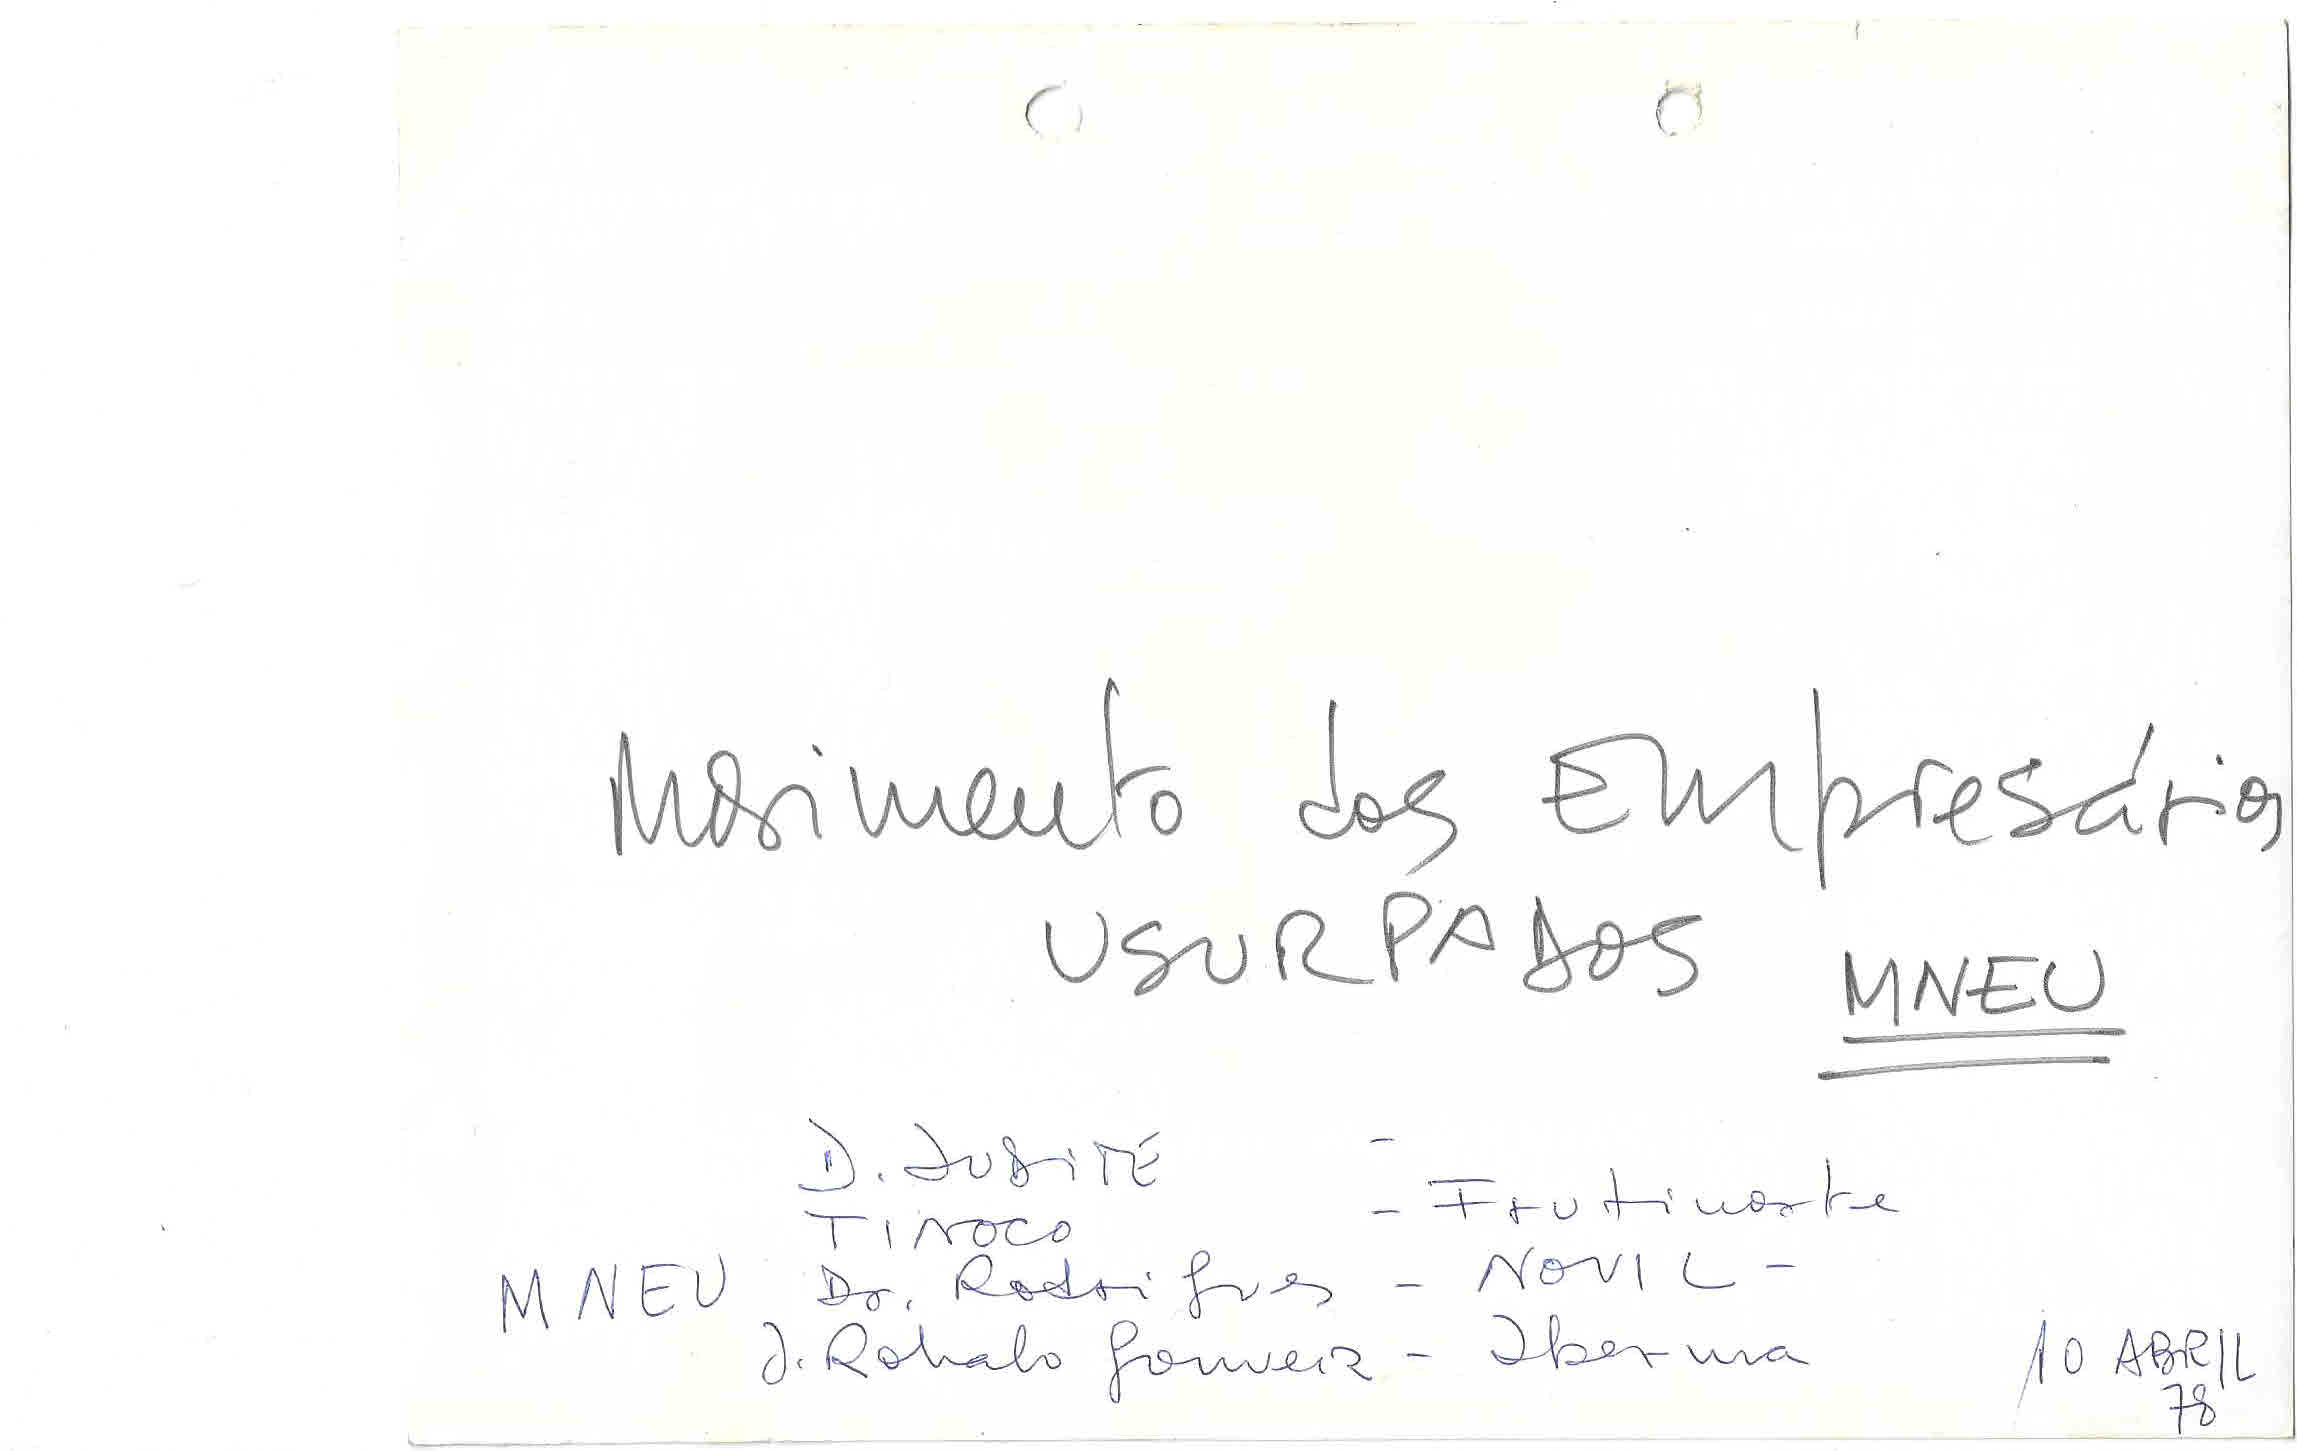 Movimento dos Empresários
USURPADOS MNEU
D. JUDITE -
TINOCO - Frutinorte
MNEU Dr. Rodrigues - NOVIL -
J. Robalo Gouveia - Iberma
10 ABRIL
78